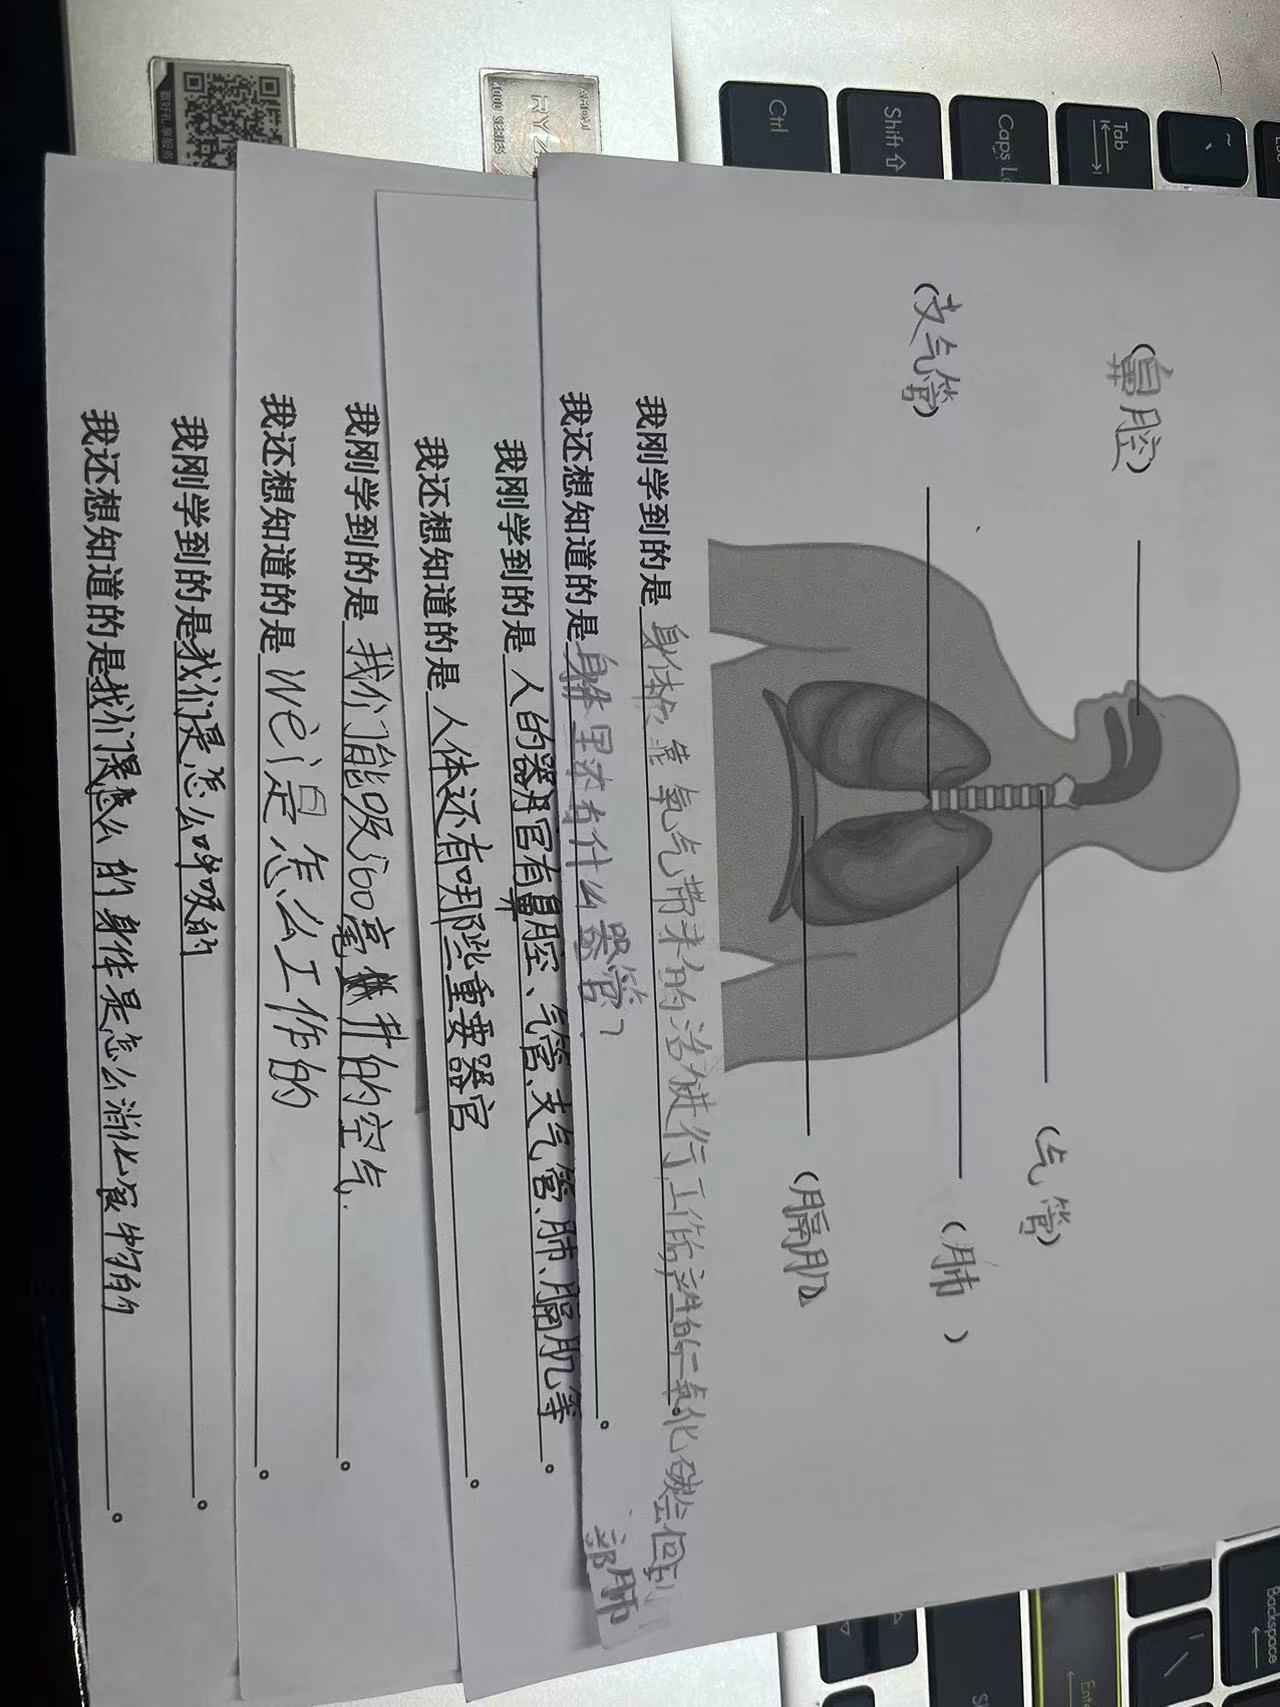 Ctrl
Shift
Caps Lo
Tab
RYZ
4000 SERIES
Backspace
Enter
(鼻腔)
(支气管)
(气管)
(肺)
(膈肌)
我刚学到的是身体靠氧气带来的活力进行工作,产生的二氧化碳会回到肺部
我还想知道的是身体里还有什么器官?。
我刚学到的是人的器官有鼻腔、气管、支气管、肺、膈肌等。
我还想知道的是人体还有哪些重要器官。
我刚学到的是我们能吸360毫升的空气.。
我还想知道的是We们是怎么工作的。
我刚学到的是我们是怎么呼吸的。
我还想知道的是我们是怎么的身体是怎么消化食物的。